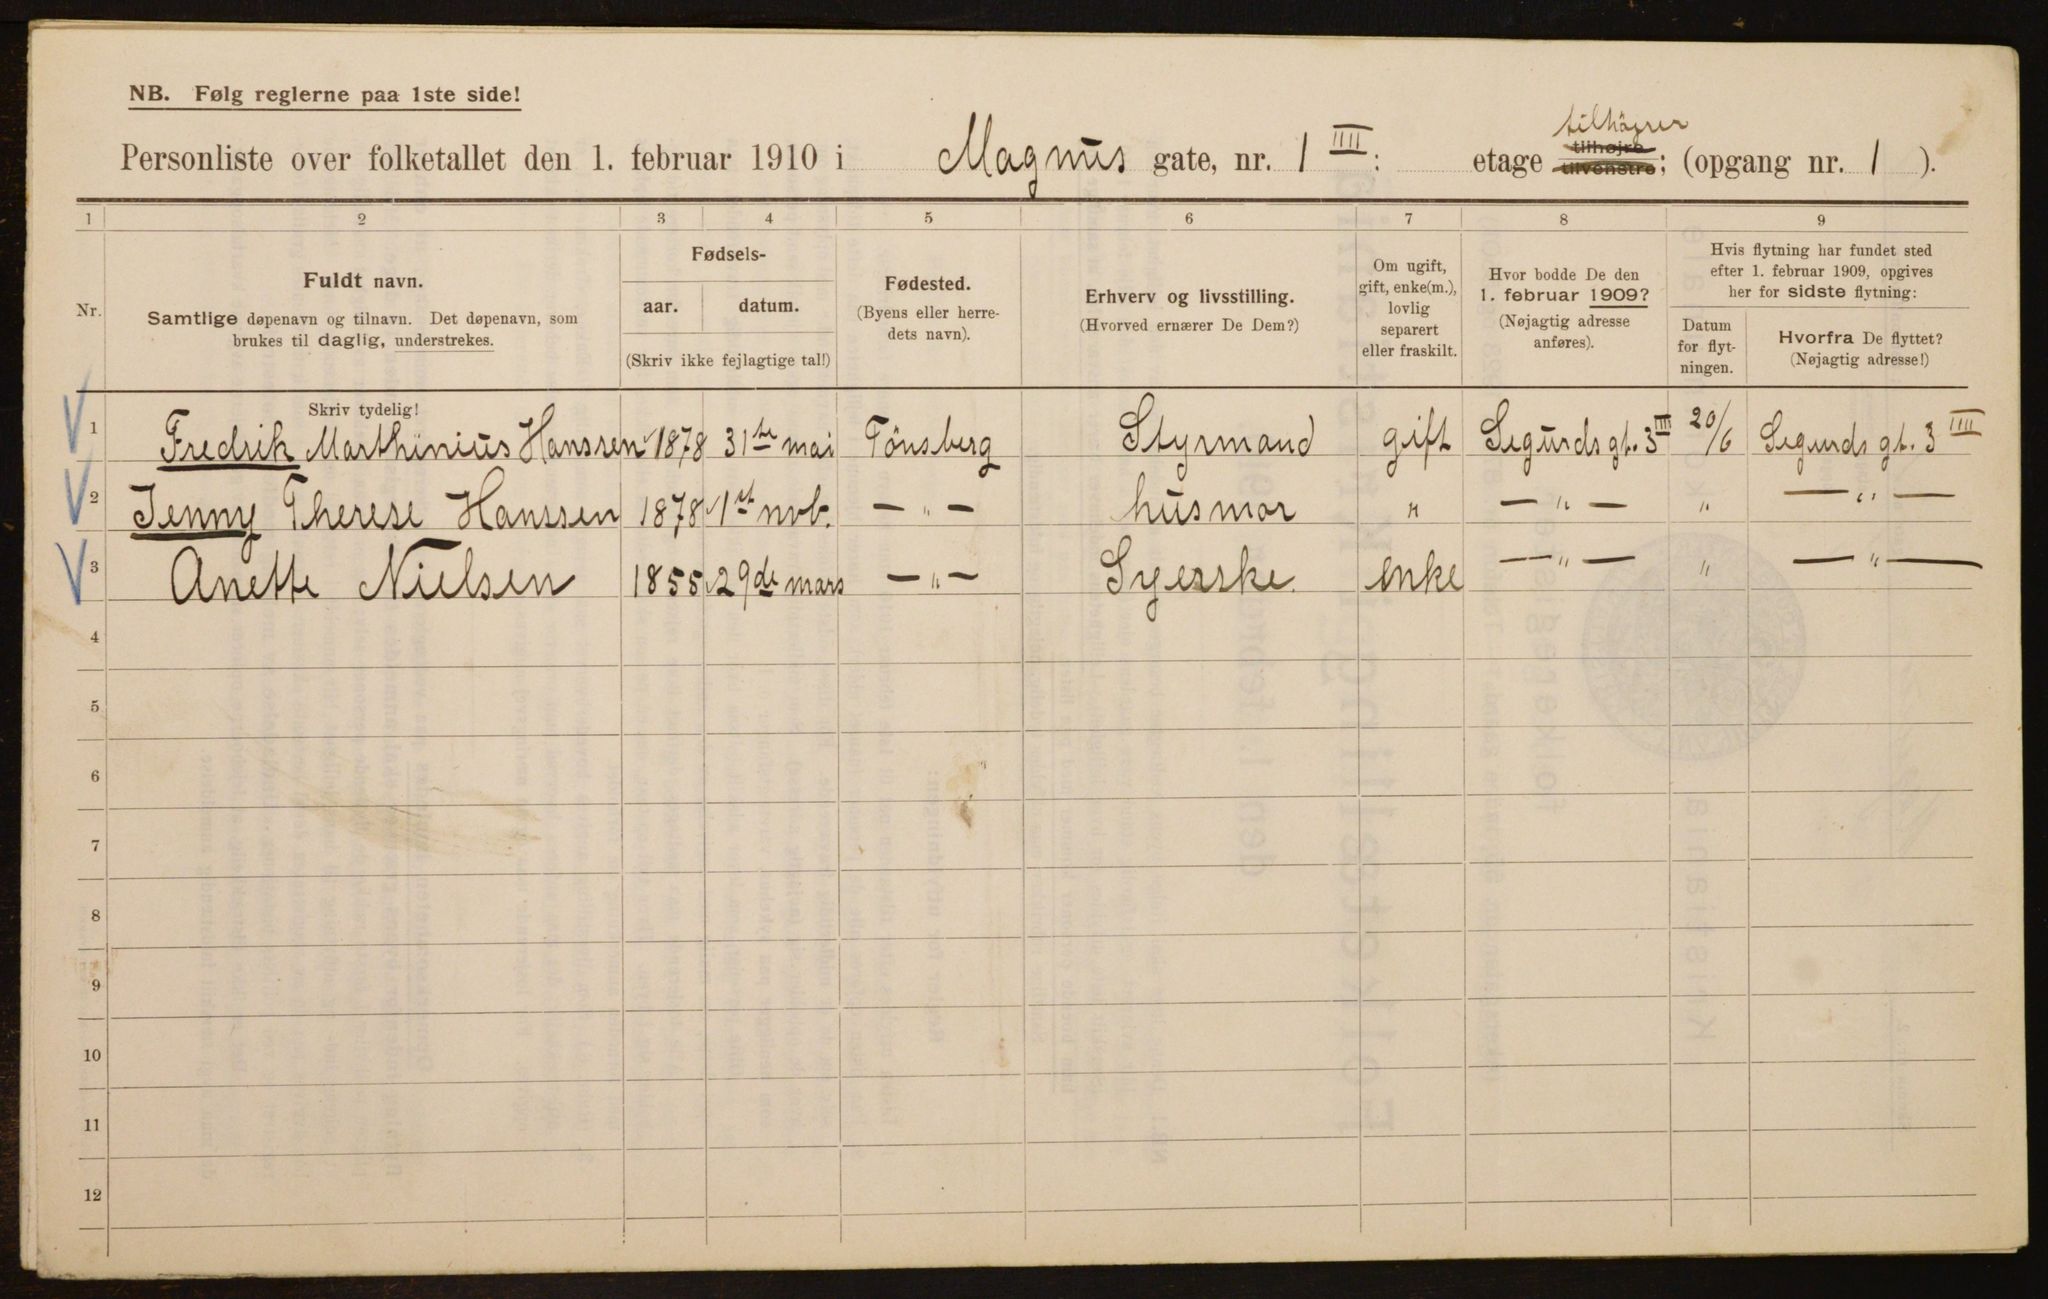 NB. Følg reglerne paa 1ste side!
tilhäirer
Personliste over folketallet den 1. februar 1910 i Magnus gate, nr. 1 IIII: etage tilhøjre tilvenstre; (opgang nr. 1 ).
1 2 3 4 5 6 7 8 9
Nr.
Fuldt navn.
Samtlige døpenavn og tilnavn. Det døpenavn, som
brukes til daglig, understrekes.
Fødsels-
aar. datum.
(Skriv ikke fejlagtige tal!)
Fødested.
(Byens eller herre-
dets navn).
Erhverv og livsstilling.
(Hvorved ernærer De Dem?)
Om ugift,
gift, enke(m.),
lovlig
separert
eller fraskilt.
Hvor bodde De den
1. februar 1909?
(Nøjagtig adresse
anføres).
Hvis flytning har fundet sted
efter 1. februar 1909, opgives
her for sidste flytning:
Datum
for flyt-
ningen.
Hvorfra De flyttet?
(Nøjagtig adresse!)
Skriv tydelig!
1 Fredrik Marthinius Hanssen 1878 31te mai Tönsberg Styrmand gift Segurds gt. 3 IIII 20/6 Segurds gt. 3 IIII
2 Jenny Therese Hanssen 1878 1st nvb. — " — husmor " — " — " — " —
3 Anette Nielsen 1855 29de mars — " — Syerske. enke — " — " — " —
4
5
6
7
8
9
10
11
12